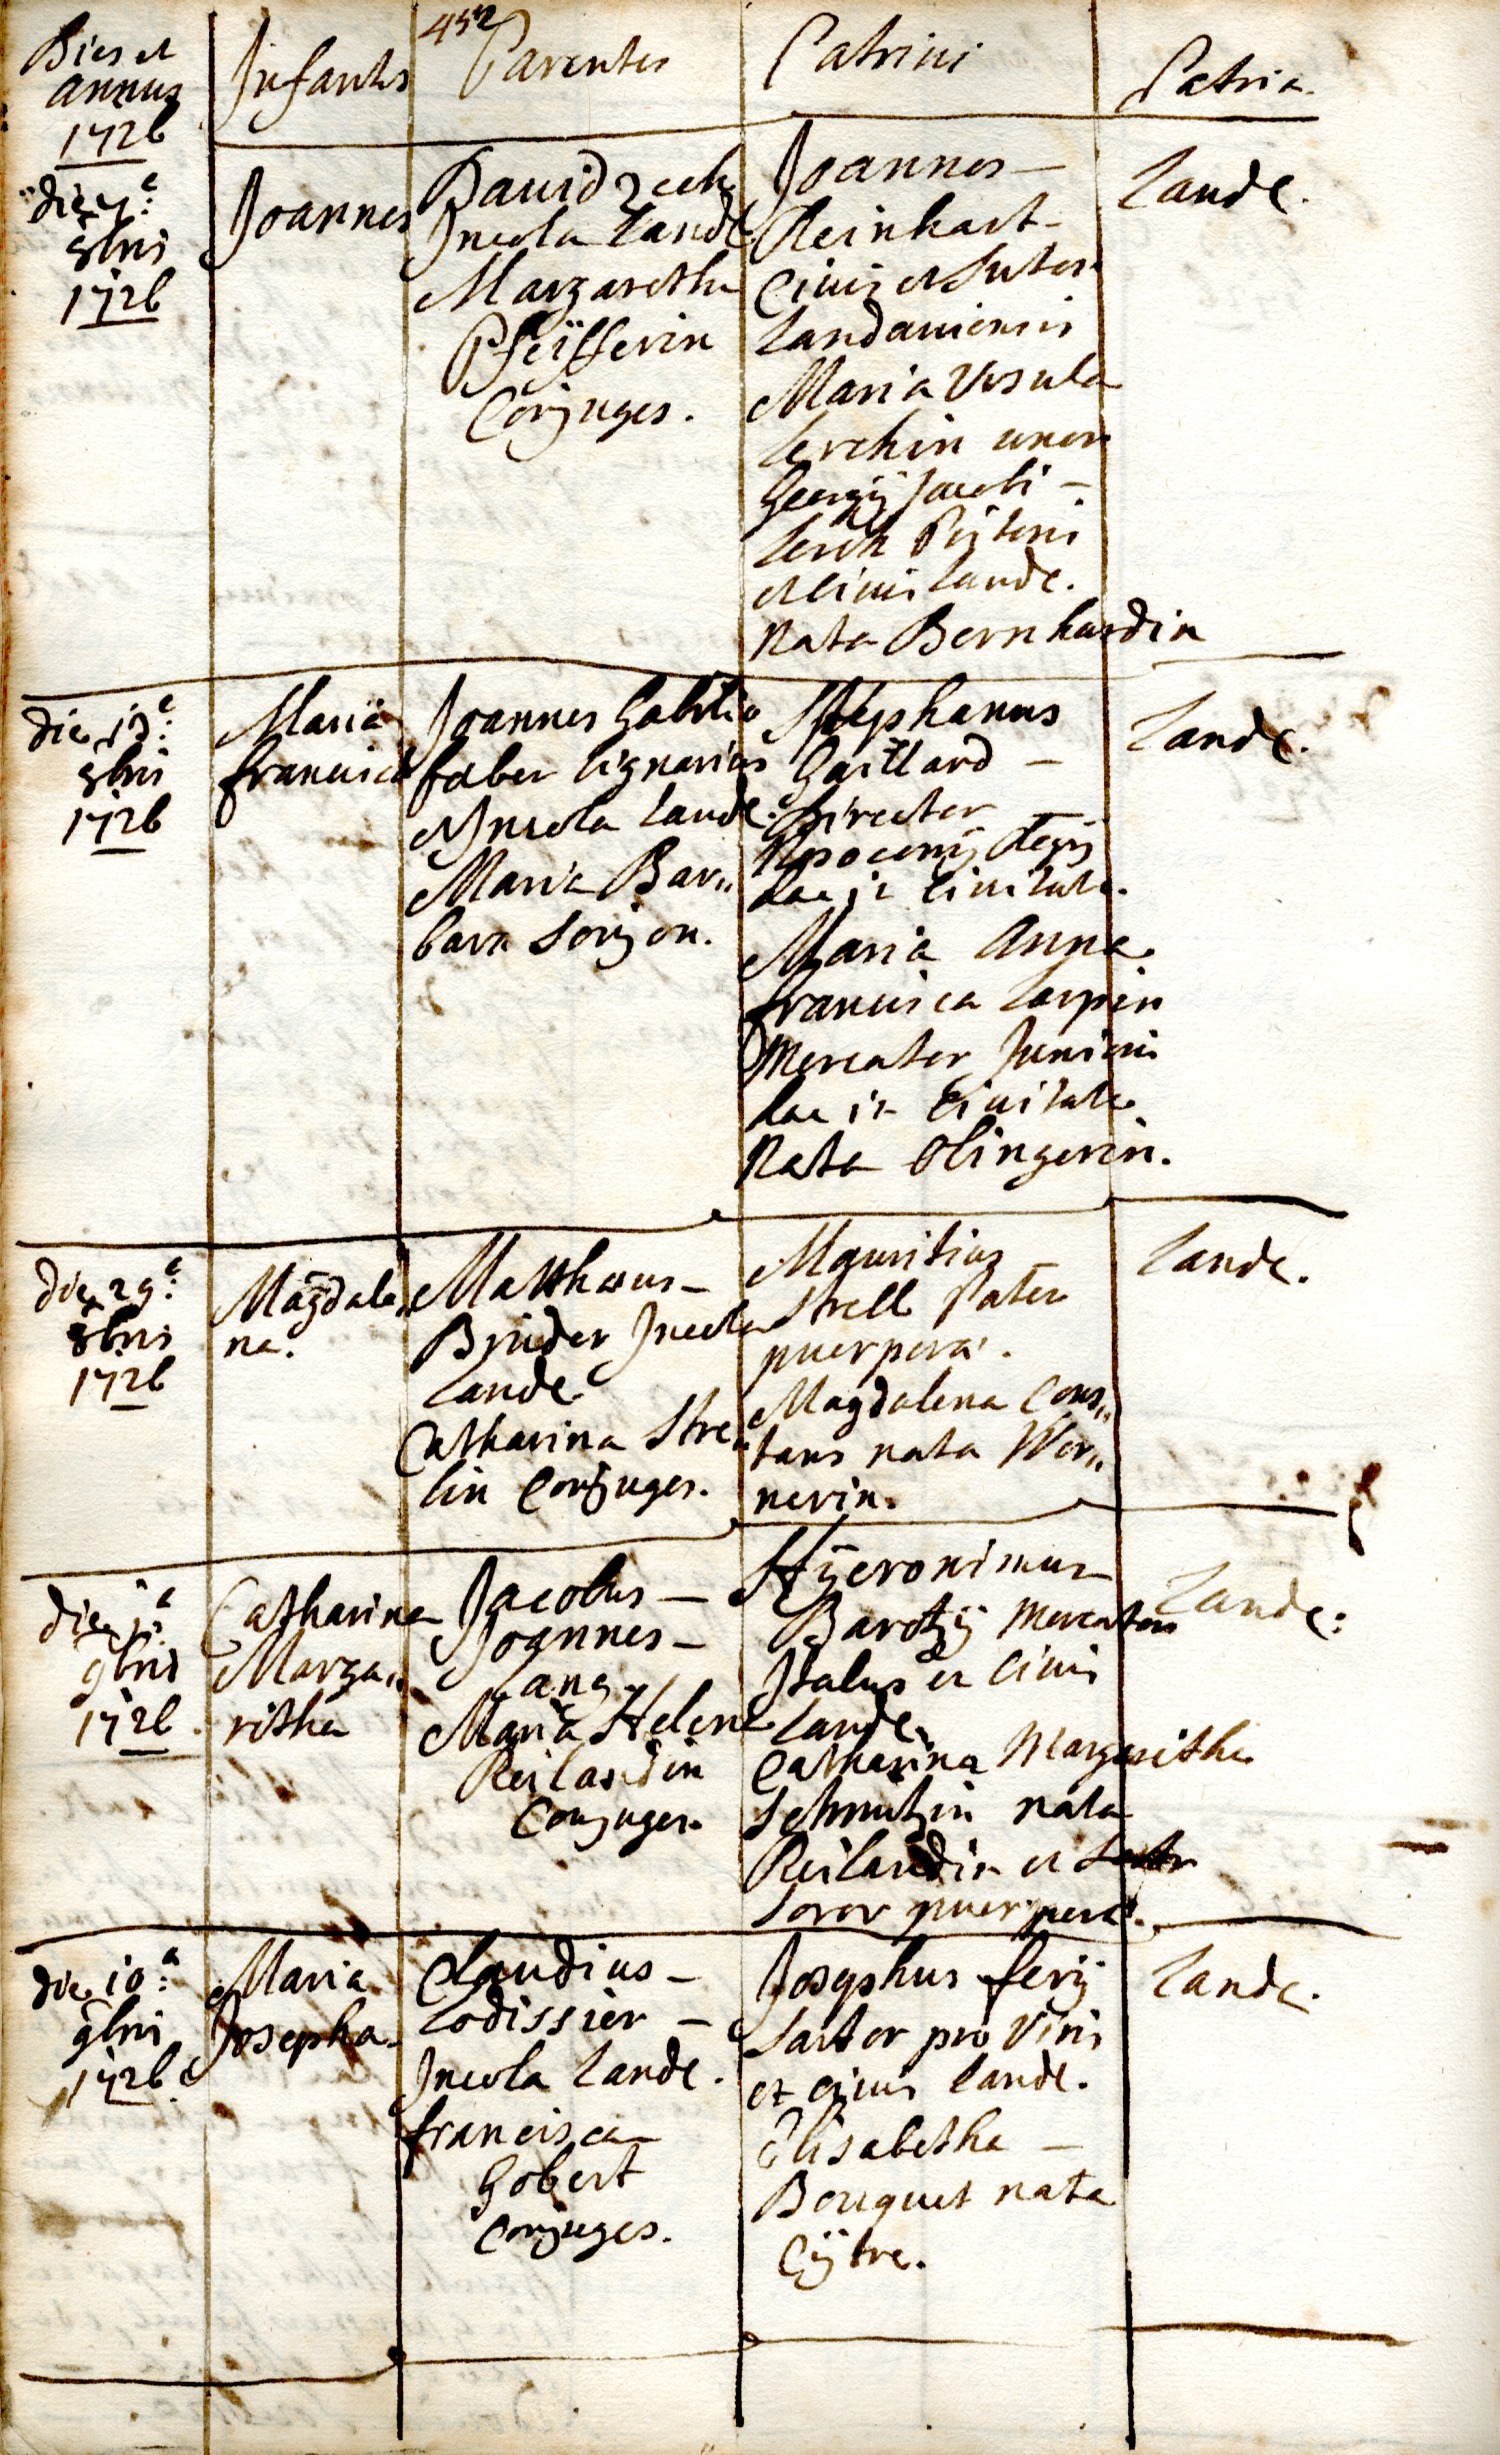 452
Dies et
annus
1726
Infantes
Parentes
Patrini
Patria.
die 7.a
8bris
1726
Joannes
David Zech
Incola Landae
Margaretha
Pfeifferin
Conjuges.
Joannes
Reinhart
Civis et Sutor
Landaviensis
Maria Ursula
Lerchin uxor
Georgij Jacobi
Lerch Pistoris
et Civis Landae.
nata Bernhardin
Landae.
die 13.a
8bris
1726
Maria
Francisca
Joannes
faber lignarius
et Incola Landae.
Maria Bar„
bara
Stephanus
Gaillard
Director
Regij
hac in Civitate.
Maria Anna
Francisca
Mercator Junioris
hac in Civitate
nata Olingerin.
Landae.
die 29.a
8bris
1726
Magdale
na.
Matthaeus
Bruder Incola
Landae
Catharina Stre„
lin Conjuges.
Mauritius
Strell Pater
puerperae.
Magdalena Cons„
tans nata Wer„
nerin.
Landae.
die 1.a
9bris
1726.
Catharina
Marga„
ritha
Jacobus
Joannes
Lang
Maria Helena
Reilandin
Conjuges.
Hyeronimus
Barotzij Mercator
Italus et Civis
Landae.
Catharina Margaritha
Schmutzin nata
Reilandin et
Soror puerperae.
Landae:
die 10.a
9bris
1726.
Maria
Josepha.
Claudius
Lodissier
Incola Landae.
Francisca
Gobert
Conjuges.
Josephus Ferij
Sartor pro Viris
et civis Landae.
Elisabetha
Bouquet nata
Cytre.
Landae.